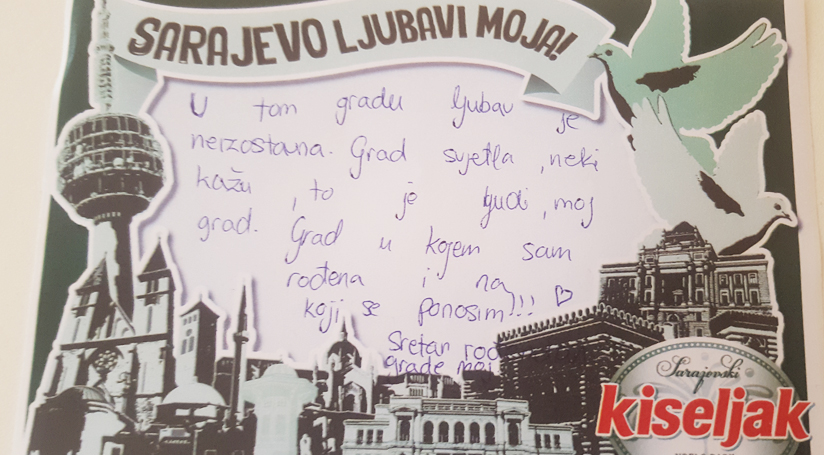 SARAJEVO LJUBAVI MOJA!
U tom gradu ljubav je
neizostavna. Grad svjetla, neki
kažu, to je ljudi, moj
grad. Grad u kojem sam
rođena i na
koji se ponosim!!! ♡
Sretan
grade moj
Sarajevski
kiseljak